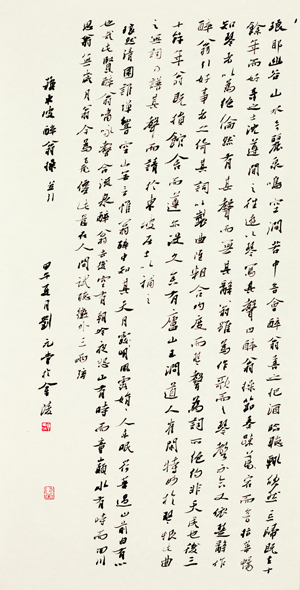 琅琊幽谷山水之麗泉鳴空澗若中音會醉翁喜之把酒臨聽輒欣然忘歸既去十
餘年而好奇之士沈遵聞之往遊以琴寫其聲曰醉翁操節奏疏宕而音指華暢
知琴者以為絕倫然有其聲而無其辭翁雖為作歌而與琴聲不合又依楚辭作
醉翁引好事者亦倚其詞以製曲雖粗合均度而琴聲為詞所繩約非天成也後三
十餘年翁既捐館舍而遵亦沒久矣有廬山玉澗道人崔閑特妙於琴恨此曲
之無詞乃譜其聲而請於東坡居士以補之
琅然清圓誰彈響空山無言惟翁醉中知其天月明風露娟娟人未眠荷蕢過山前曰有心
也哉此賢醉翁嘯詠聲和流泉醉翁去後空有朝吟夜怨山有時而童巔水有時而回川
思翁無歲月翁今為飛仙此意在人間試聽徽外三兩絃
蘇東坡醉翁操並引
甲午五月劉元堂於金陵